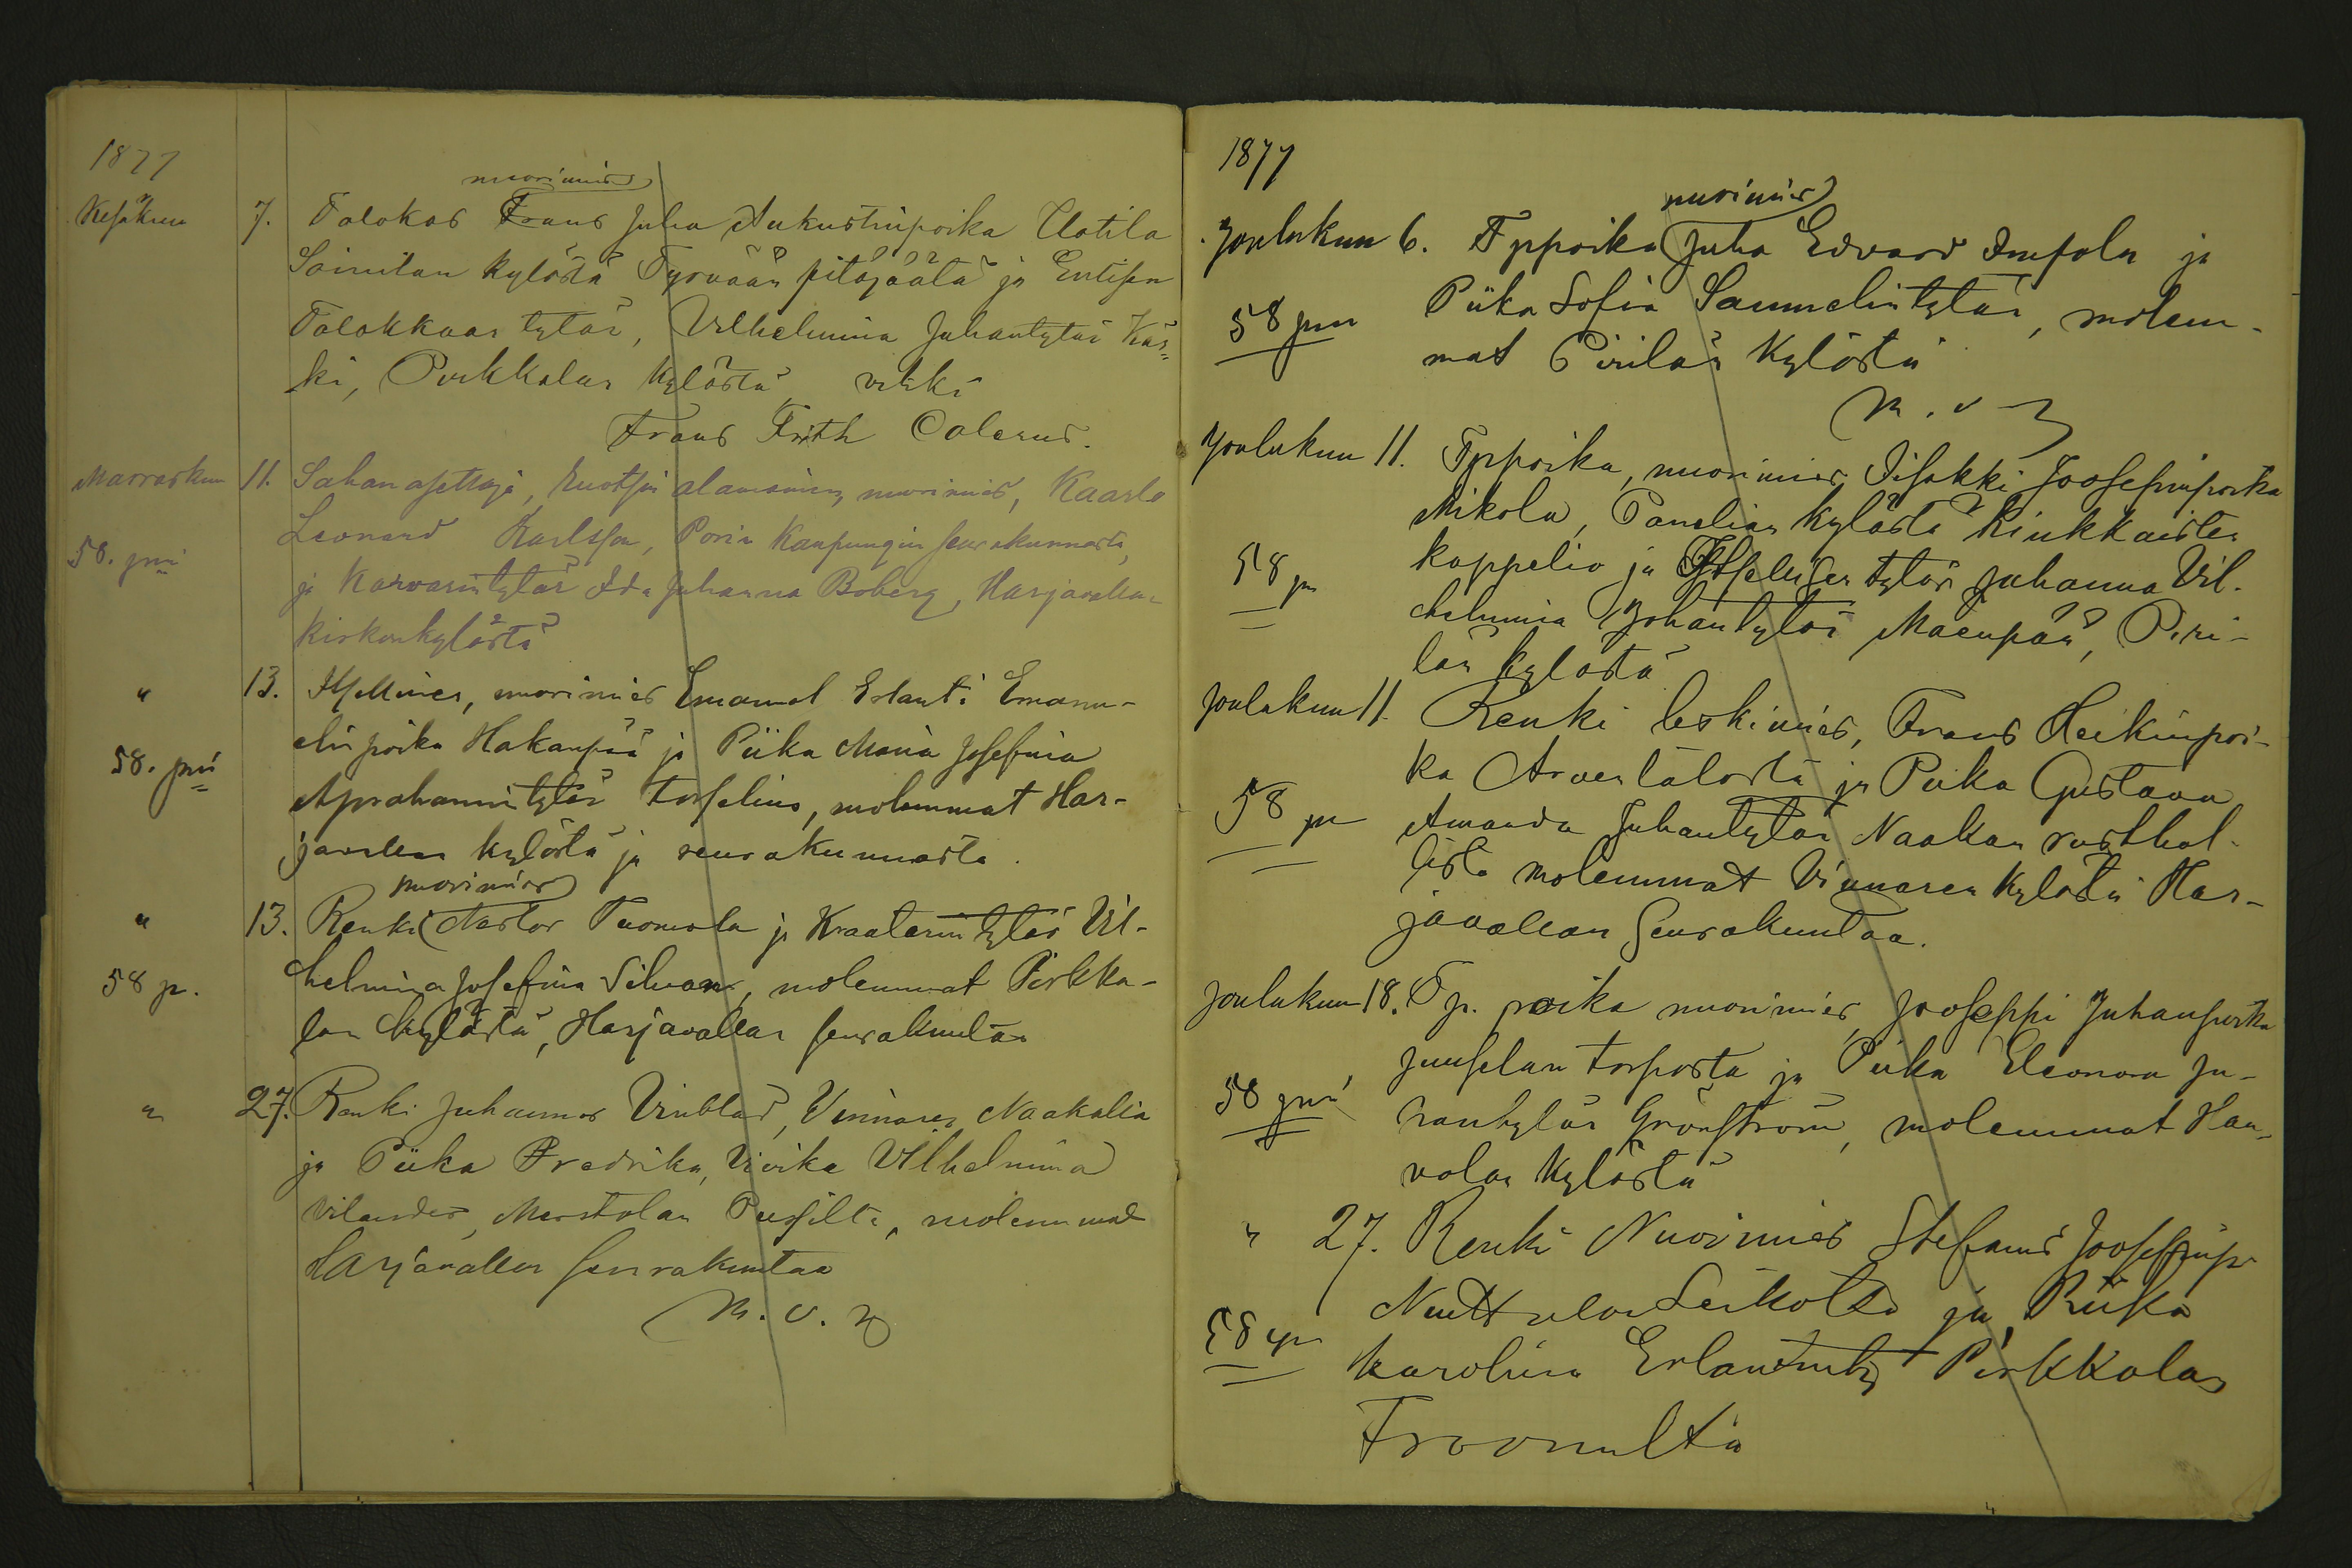 1877
nuorimies
Kesäkuu 7. Talokas Frans Juha Aukustinpoika Uotila
Soinilan kylästä Tyrvään pitäjäätä ja Entisen
Talokkaan tytär, Vilhelmina Juhantytär Kär-
ki, Pirkkalan kylästä vihki
Frans Frith Calenus.
Marraskuu 11. Sahanasettaja, Ruotsin alamainen, nuorimies, Kaarlo
58. pni Leonard Karlsson, Porin Kaupungin seurakunnasta,
ja Karvarintytär Ida Juhanna Boberg, Harjavallan
kirkonkylästä
" 13. Itsellinen, nuorimies Emanuel Erlanti Emanu-
58. pni elinpoika Hakanpää ja Piika Maria Josefina
Aprahamintytär Torselius, molemmat Har-
javallan kylästä ja seurakunnasta.
nuorimies
" 13. Renki Nestor Tuomola ja Kraatarintytär Vil-
58 p. helmina Josefina Silvan, molemmat Pirkka-
lan kylästä, Harjavallan seurakuntaa
" 27. Renki Juhannes Vinblad, Vinnaren Naakalia
ja Piika Fredrika, Vivika Vilhelmina
Vilander, Merstolan Pussilta, molemmat
Harjavallan seurakuntaa
M. v.
1877
nuorimies
Joulukuu 6. Tppoika Juha Edvard Impola ja
58 pni Piika Sofia Samuelintytär, molem-
mat Pirilän Kylästä
M. v
Joulukuu 11. Tppoika, nuorimies, Iisakki Joosefinpoika
Mikola, Panelian kylästä Kiukkaisten
58 pn kappelia ja Itsellisen tytär Juhanna Vil-
helmina Juhantytär Mäenpää, Piri-
län kylästä
Joulukuu 11. Renki leskimies, Frans Heikinpoi-
ka Arventälostä ja Piika Gustava
58 pn Amanda Juhantytär Naakan rusthol-
lista molemmat Vinnaren kylästä Har-
javallan Seurakuntaa.
Joulukuu 18. Tp. poika nuorimies, Jooseppi Juhanpoika
Juuselan torpasta ja Piika Eleonora Ju-
58 pni hantytär Grönström, molemmat Hau-
volan kylästä
" 27. Renki Nuorimies Stefanus Joosefinp
58 pn Nuttulan Seikolta ja Piika
Karolina Erlantinty Pirkkalan
Froonulta